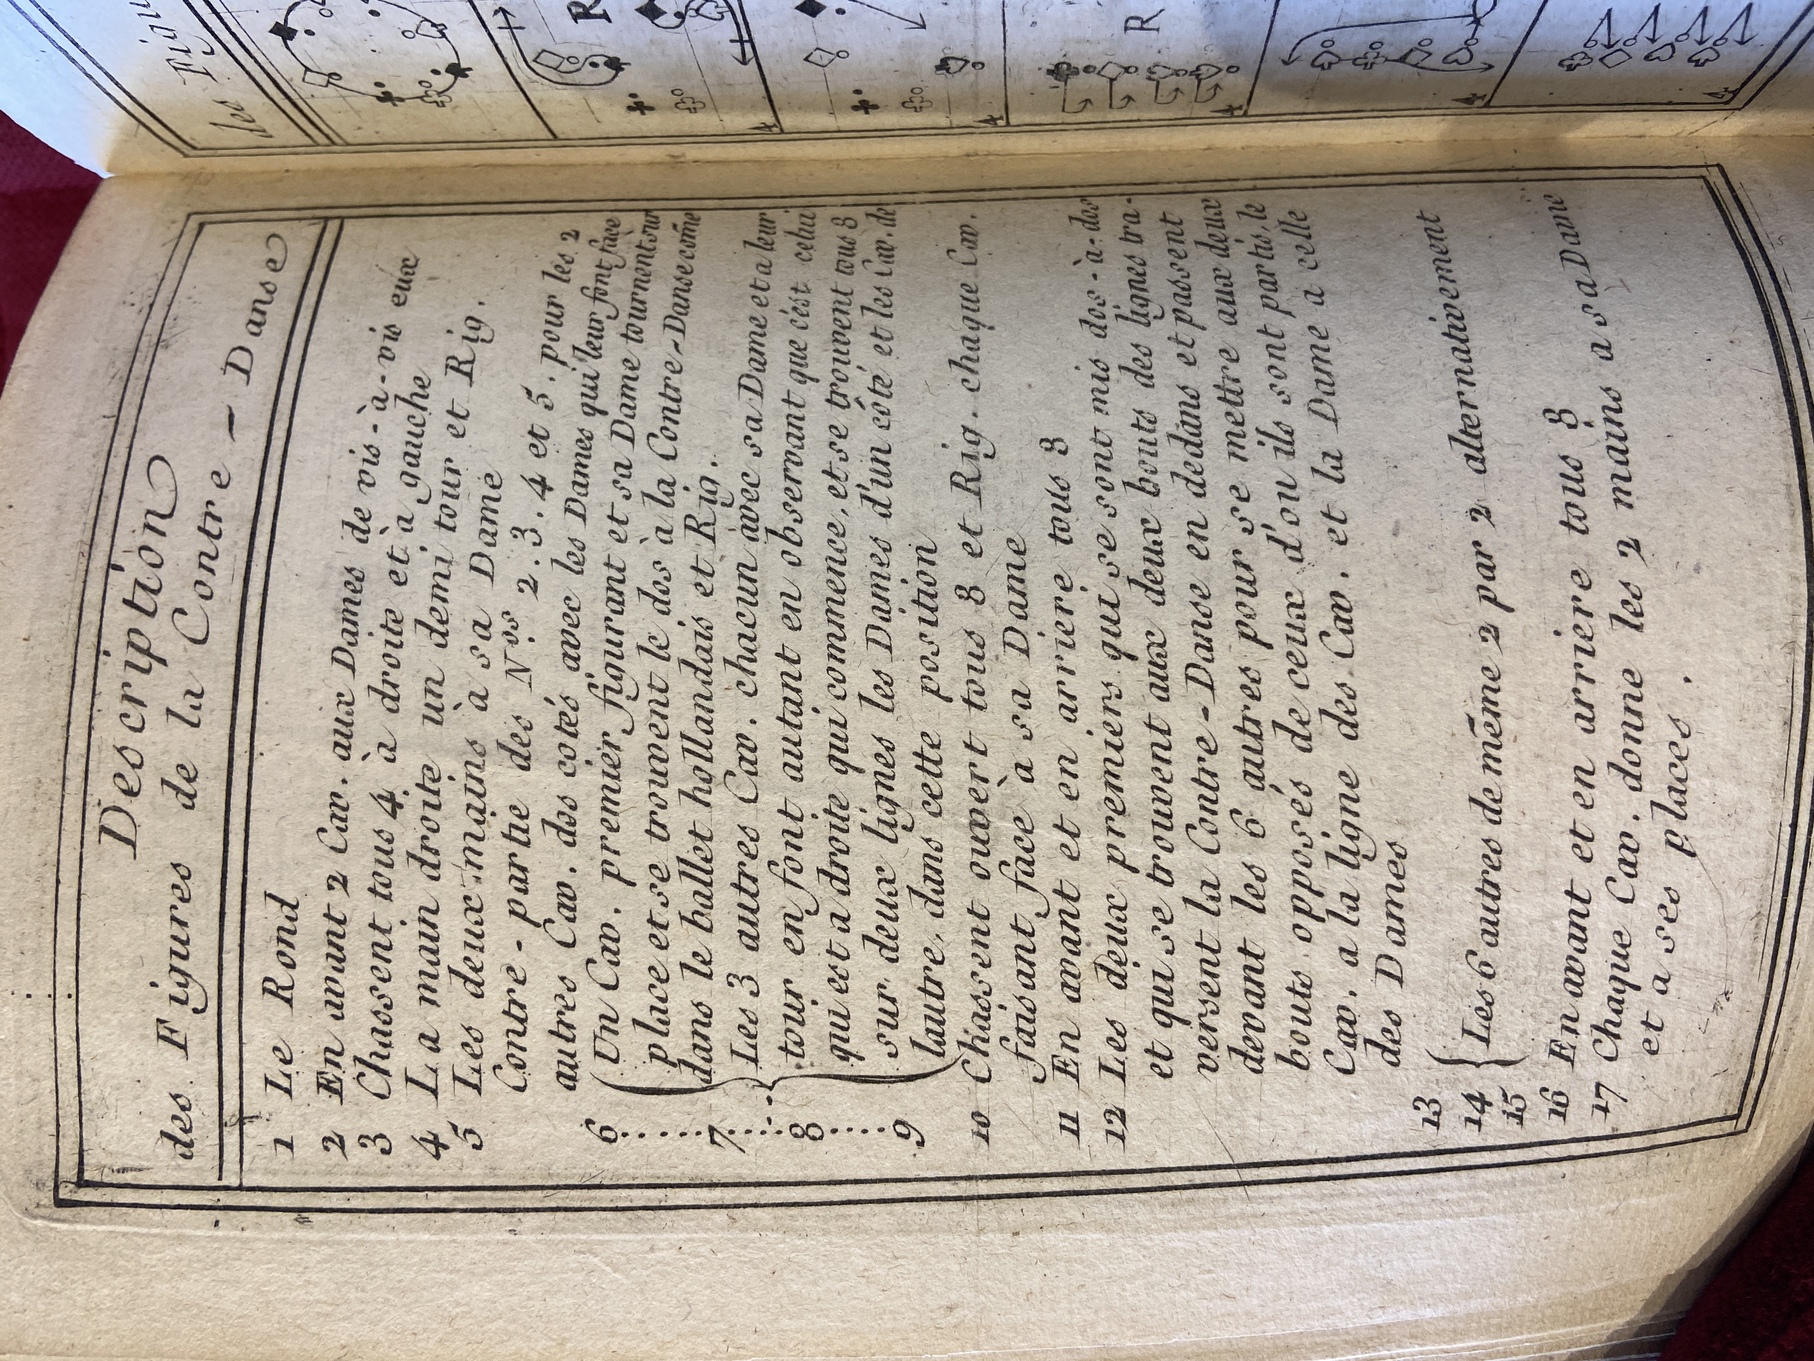 Description
des Figures de la Contre - Danse
1 Le Rond
2 En avant 2 Cav. aux Dames de vis-à-vis eux
3 Chassent tous 4 à droite et à gauche
4 La main droite un demi tour et Rig.
5 Les deux mains à sa Dame
Contre-partie des Nos 2.3.4 et 5. pour les 2
autres Cav. des cotés avec les Dames qui leur font face
6 Un Cav. premier figurant et sa Dame tournent sur
place et se trouvent le dos à la Contre-Danse come
7 dans le ballet hollandais et Rig.
Les 3 autres Cav. chacun avec sa Dame et a leur
8 tour en font autant en observant que c'est celui
qui est a droite qui commence, et se trouvent tous 8
sur deux lignes les Dames d'un côté et les Cav. de
9 lautre, dans cette position
10 Chassent ouvert tous 8 et Rig. chaque Cav.
faisant face à sa Dame
11 En avant et en arriere tous 8
12 Les deux premiers qui se sont mis dos-à-dos
et qui se trouvent aux deux bouts des lignes tra-
versent la Contre-Danse en dedans et passent
devant les 6 autres pour se mettre aux deux
bouts opposés de ceux d'ou ils sont partis, le
Cav. a la ligne des Cav. et la Dame a celle
des Dames
13
14 Les 6 autres de même 2 par 2 alternativement
15
16 En avant et en arriere tous 8
17 Chaque Cav. donne les 2 mains a sa Dame
et a ses places.
des Figu
R
R